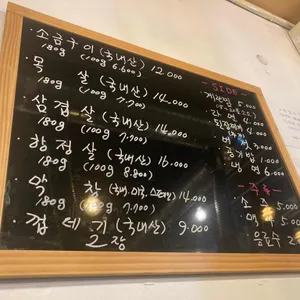 · 소금구이 (국내산) 12.000
180g (100g 6.600)
· 목 살 (국내산) 14.000
180g (100g 7.700)
· 삼겹살 (국내산) 14.000
180g (100g 7.700)
· 항정살 (국내산) 16.000
180g (100g 8.800)
· 막 창 14.000
180g (100g 7.700)
· 껍데기 (국내산) 9.000
2장
- SIDE -
5.000
· 라면 4.000
3.000
· 공기밥 1.000
· 냉면 6.000
- 주류 -
· 소주 5.000
· 맥주 5.000
· 음료수